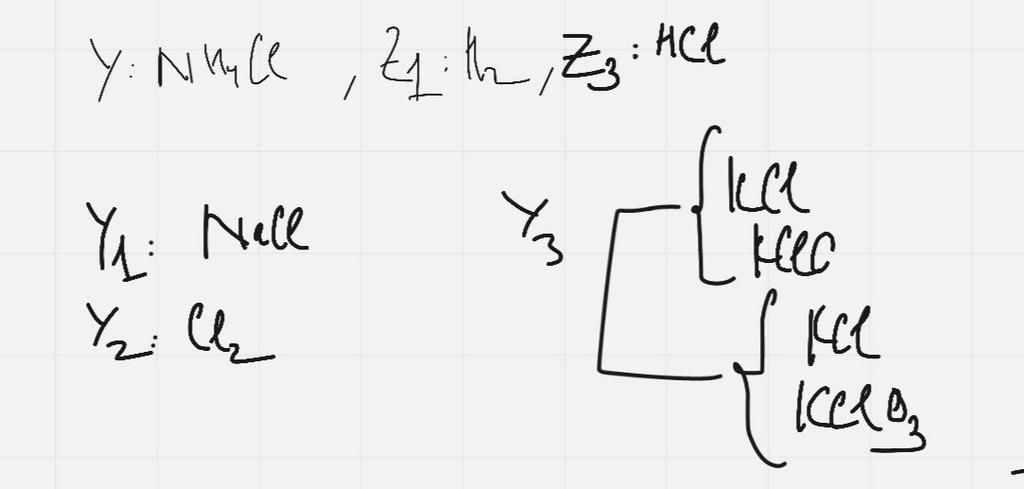 Y: NH₄Cl , Z₁: H₂ , Z₃: HCl
Y₁: NaCl
Y₂: Cl₂
Y₃
KCl
KClO
KCl
KClO₃